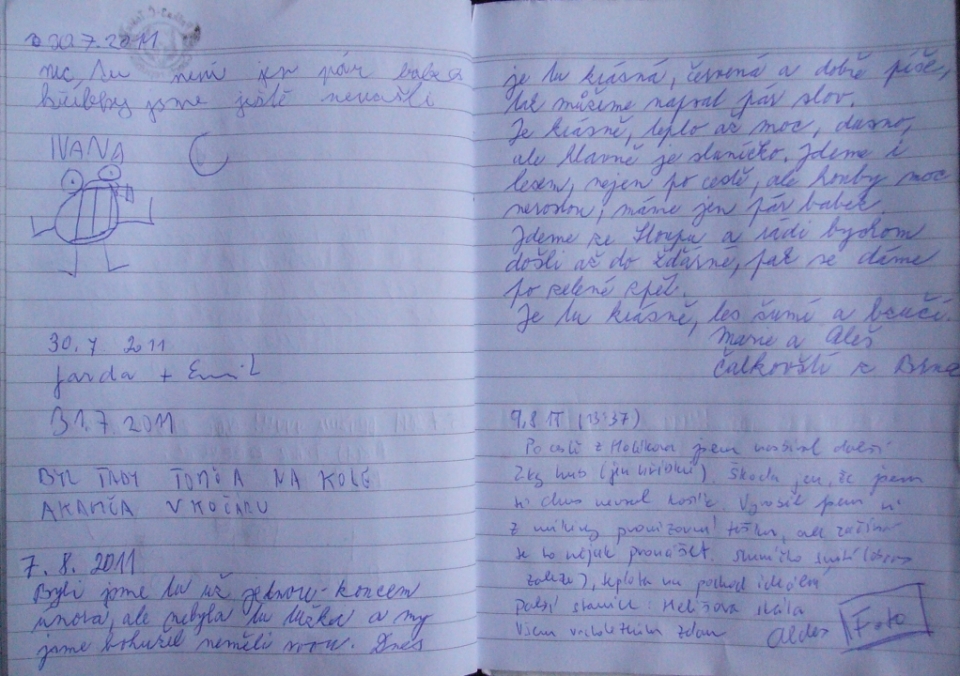 30.7.2011
nic, tu není jen pár babek
hřibky jsme ještě nenašli
IVANA
30.7 2011
Jarda + Emil
31.7.2011
BYL TADY TOMÍA NA KOLE
A KAMČA V KOČÁRU
7. 8. 2011
Byli jsme tu už jednou - koncem
února, ale nebyla tu tužka a my
jsme bohužel neměli svou. Dnes
je tu krásná, červená a dobře píše,
tak můžeme napsat pár slov.
Je krásně, teplo až moc, dusno,
ale hlavně je sluníčko. Jdeme i
lesem, nejen po cestě, ale houby moc
nerostou, máme jen pár babek.
Jdeme ze Sloupu a rádi bychom
došli až do Žďárné, pak se dáme
po zelené zpět.
Je tu krásně, les šumí a bzučí.
Marie a Aleš
Čalkovští z Brna
9,8 11 (13:37)
Po cestě z Holíkova jsem nasbíral další
2kg hub (jen hřibků). Škoda jen, že jsem
si dnes nevzal košík. Vyrobil jsem si
z mikiny provizorní tašku, ale začíná
se to nějak pronášet. Sluníčko svítí
zaleze), teplota na pochod ideální
Další stanice: Helišova skála
Všem vrcholařům zdar Aldes
Foto